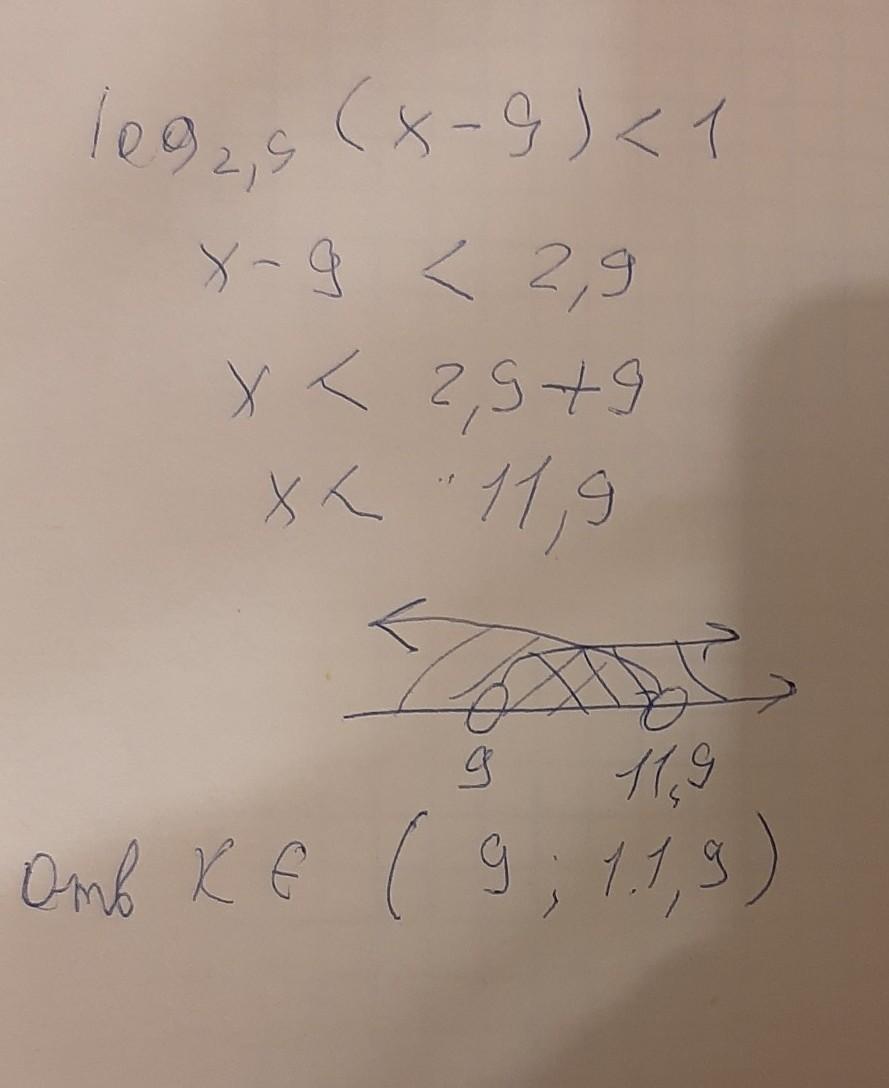 log₂,₉ (x-9) < 1
x-9 < 2,9
x < 2,9+9
x < 11,9
9 11,9
Отв X ∈ ( 9 ; 11,9 )